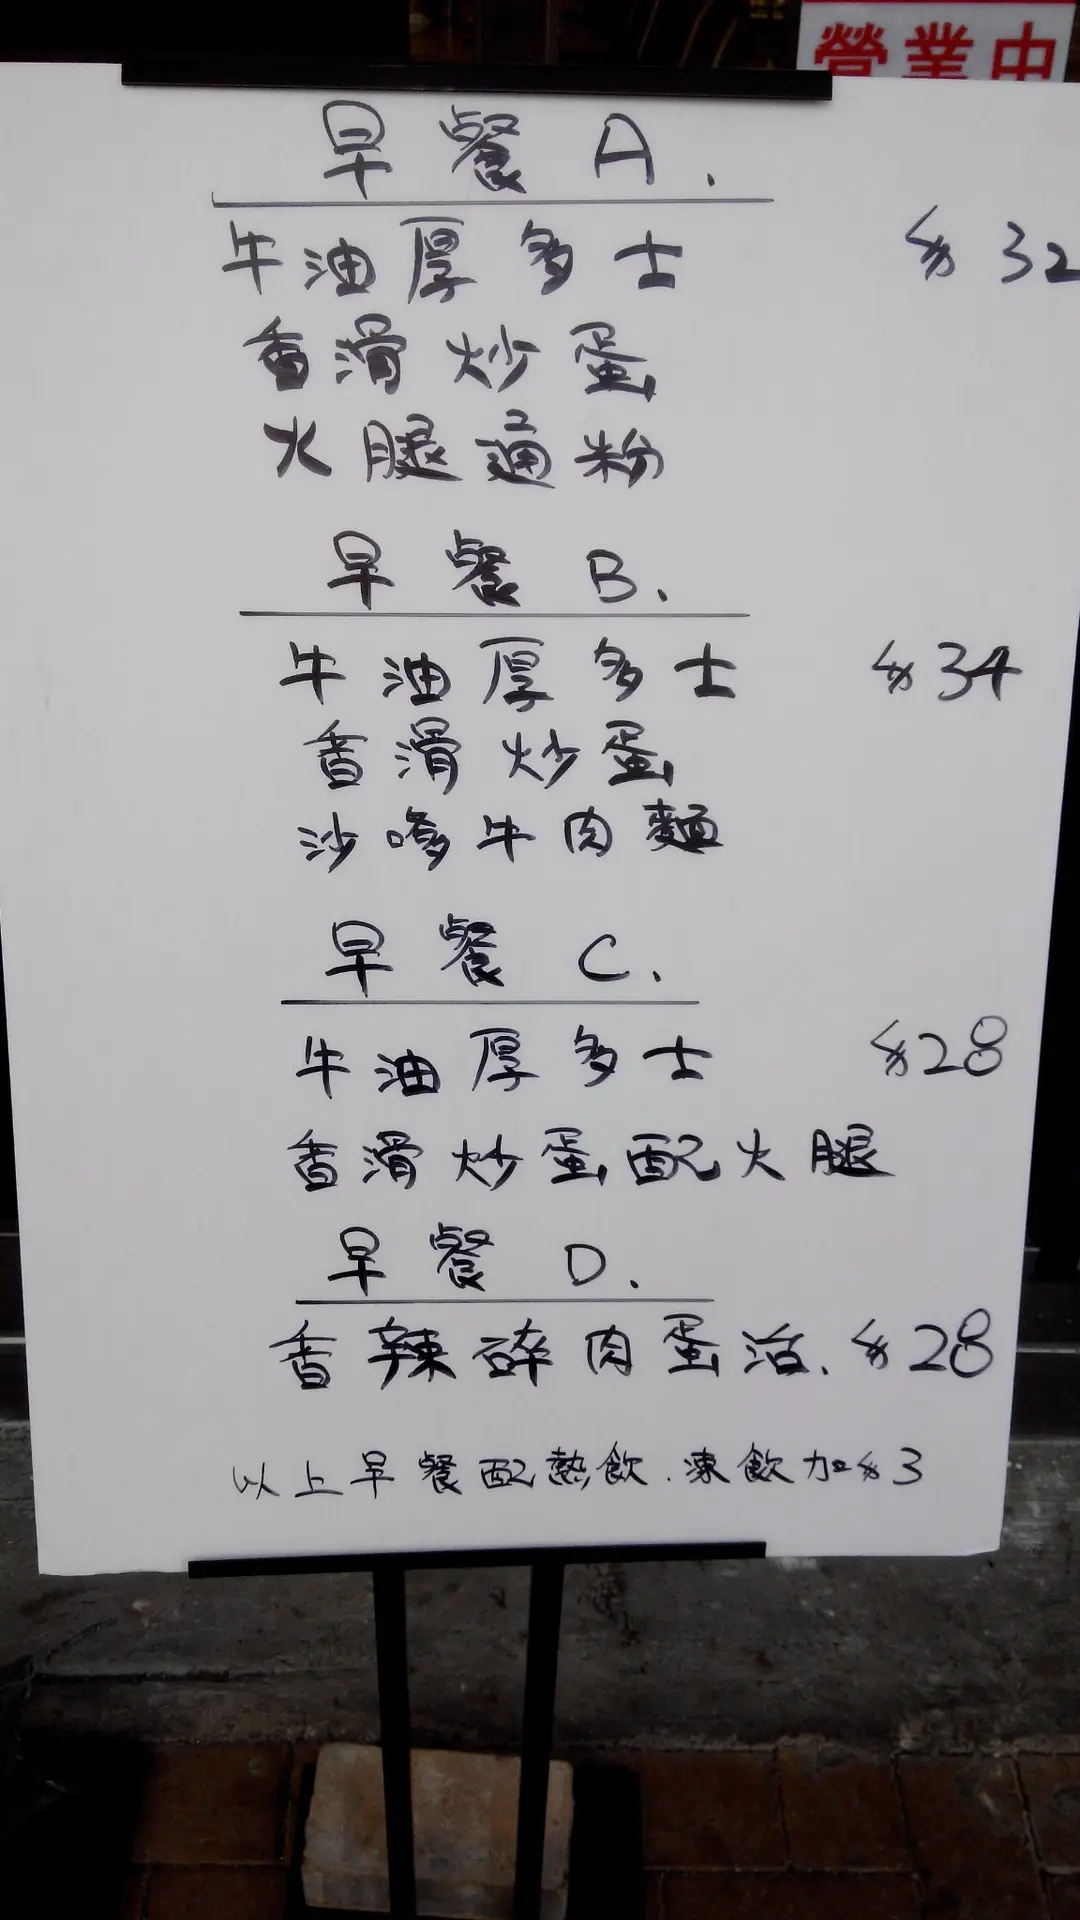 營業中
早餐 A.
牛油厚多士 $32
香滑炒蛋
火腿通粉
早餐 B.
牛油厚多士 $34
香滑炒蛋
沙嗲牛肉麵
早餐 C.
牛油厚多士 $28
香滑炒蛋配火腿
早餐 D.
香辣碎肉蛋治. $28
以上早餐配熱飲.凍飲加$3